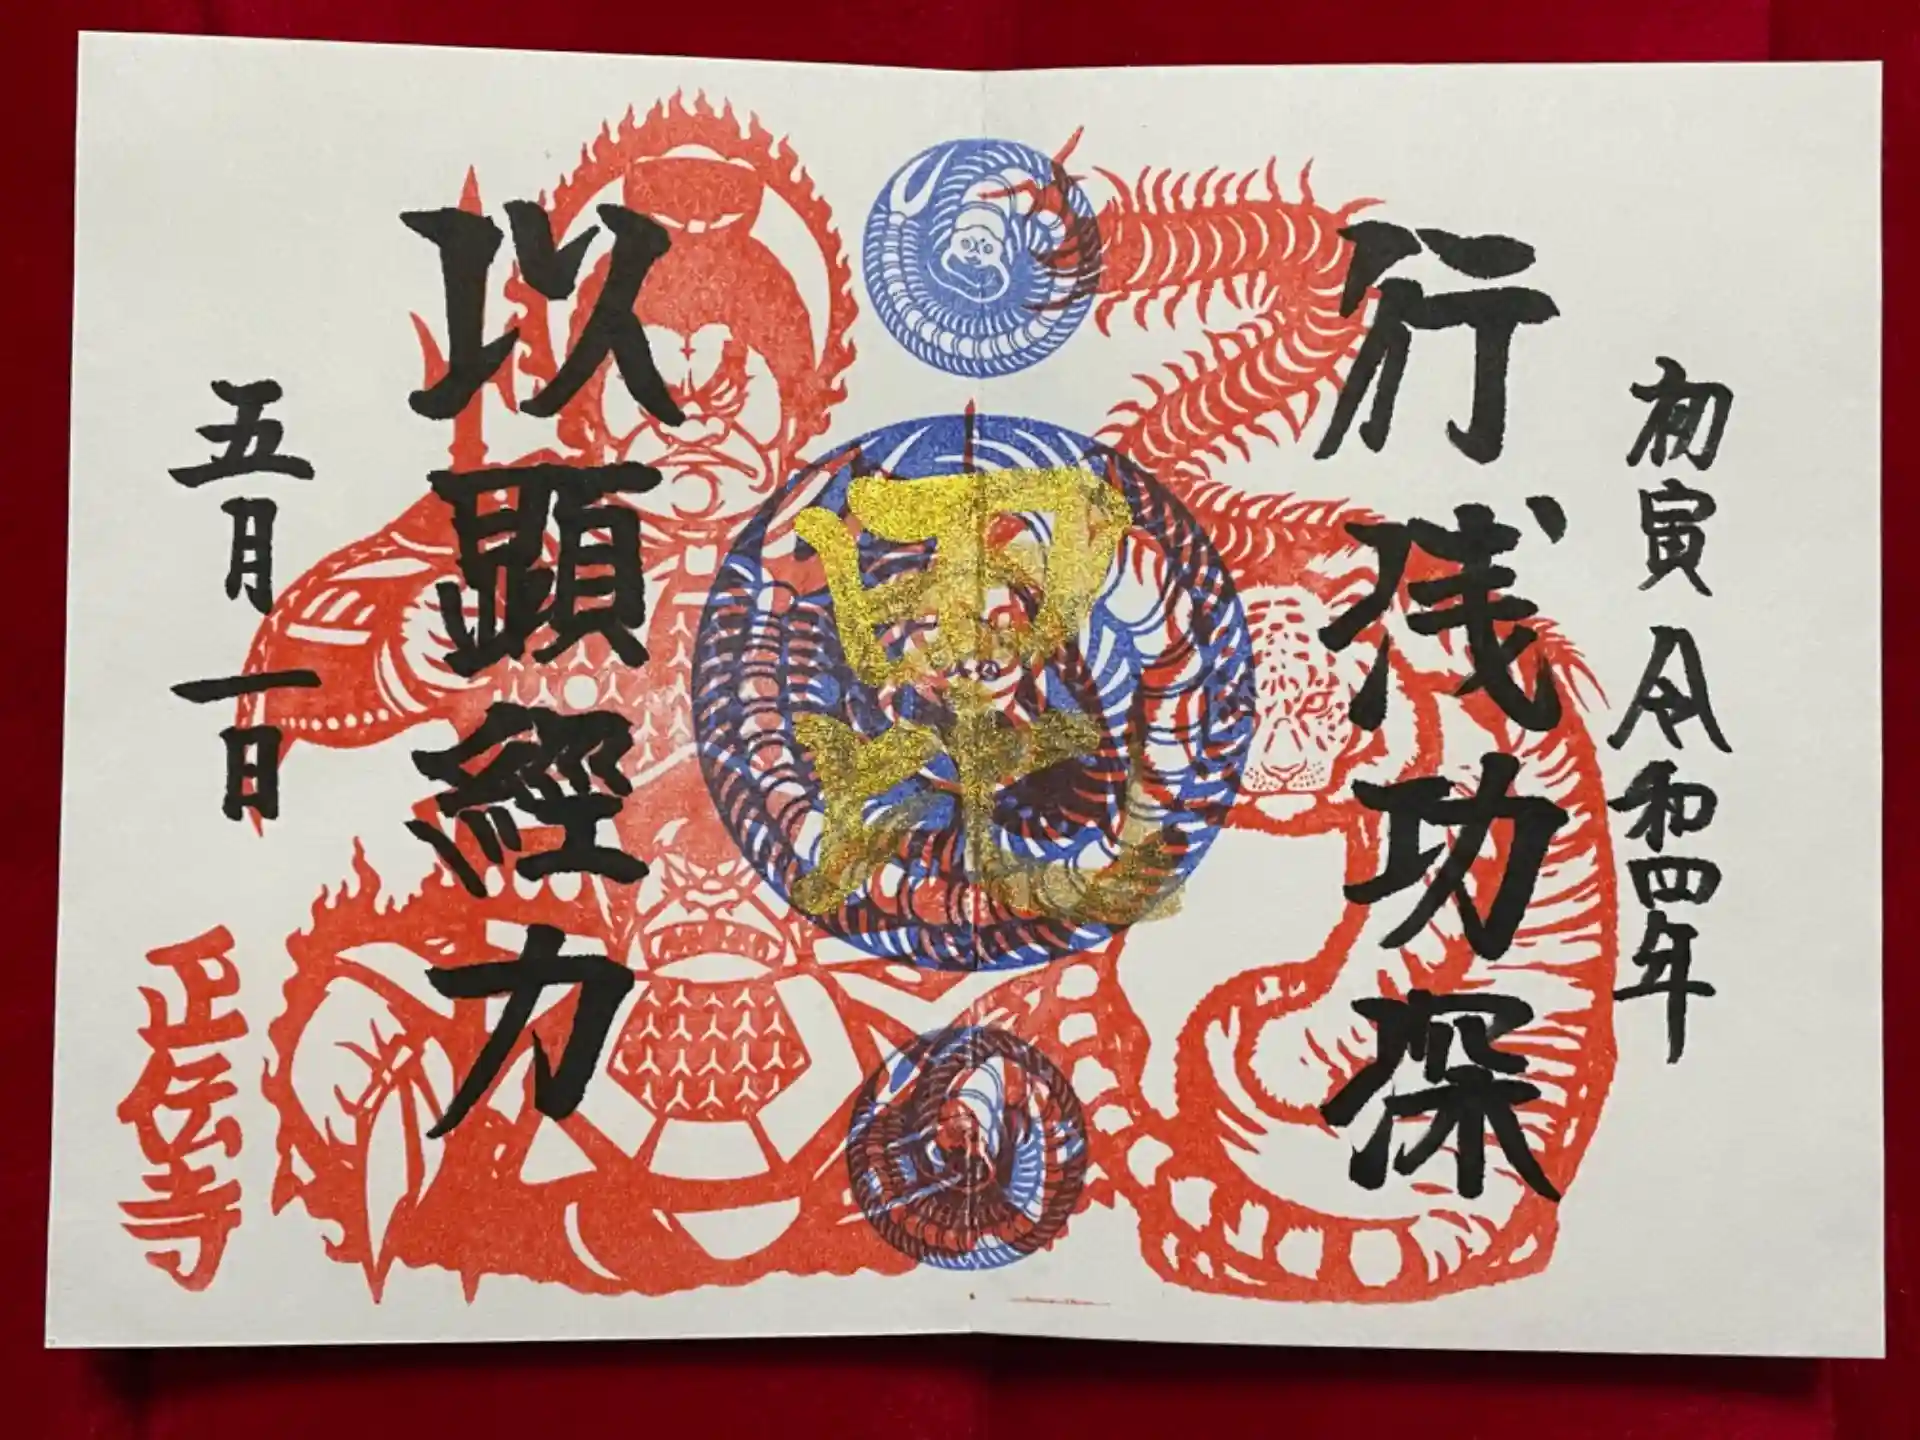 初寅 令和四年
行浅功深
毘
以顕経力
五月一日
正伝寺